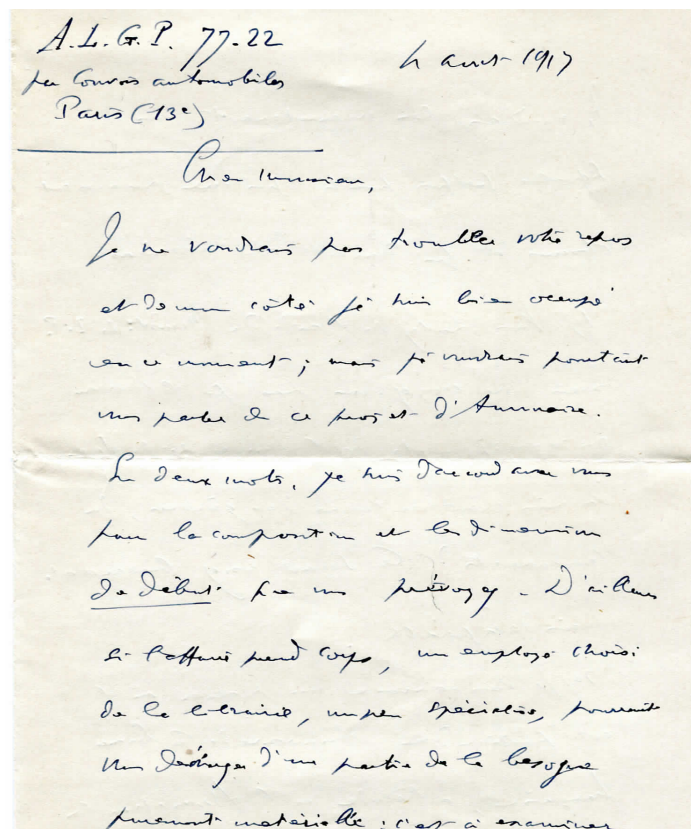 A.L.G.P. 77-22
par Convois automobiles
Paris (13e)
4 août 1917
Cher Monsieur,
Je ne voudrais pas troubler votre repos
et de mon côté je suis bien occupé
en ce moment ; mais je voudrais pourtant
vous parler de ce projet d'Annuaire.
En deux mots, je suis d'accord avec vous
pour la composition et les dimensions
de début que vous prévoyez. D'ailleurs
si l'affaire prend corps, un employé choisi
de la librairie, un peu spécialisé, pourrait
vous décharger d'une partie de la besogne
purement matérielle ; c'est à examiner